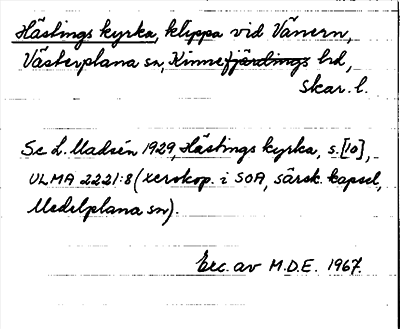 Hästings kyrka, klippa vid Vänern,
Västerplana sn, Kinnefjärdings hd,
Skar. l.
Se L. Madsén 1929, Hästings kyrka, s. [10],
ULMA 2221:8 (xerokop. i SOA, särsk. kapsel,
Medelplana sn).
Exc. av M.D.E. 1967.